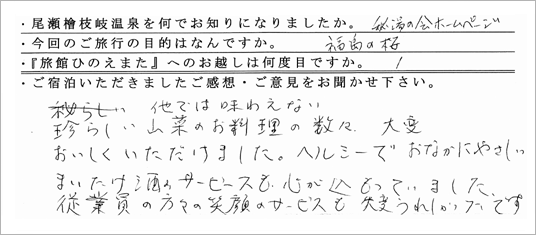 ・尾瀬檜枝岐温泉を何でお知りになりましたか。 秘湯の会ホームページ
・今回のご旅行の目的はなんですか。 福島の桜
・『旅館ひのえまた』へのお越しは何度目ですか。 1
・ご宿泊いただきましたご感想・ご意見をお聞かせ下さい。
他では味わえない
珍らしい山菜のお料理の数々、大変
おいしくいただけました。ヘルシーでおなかにやさしい
まいたけ酒のサービスも心がこもっていました。
従業員の方々の笑顔のサービスも大変うれしかったです